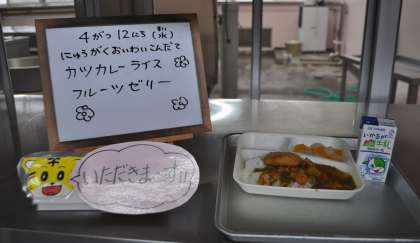 4がつ12にち(水)
にゅうがくおいわいこんだて
カツカレーライス
フルーツゼリー
いただきまーす!!
いかるが
牛乳